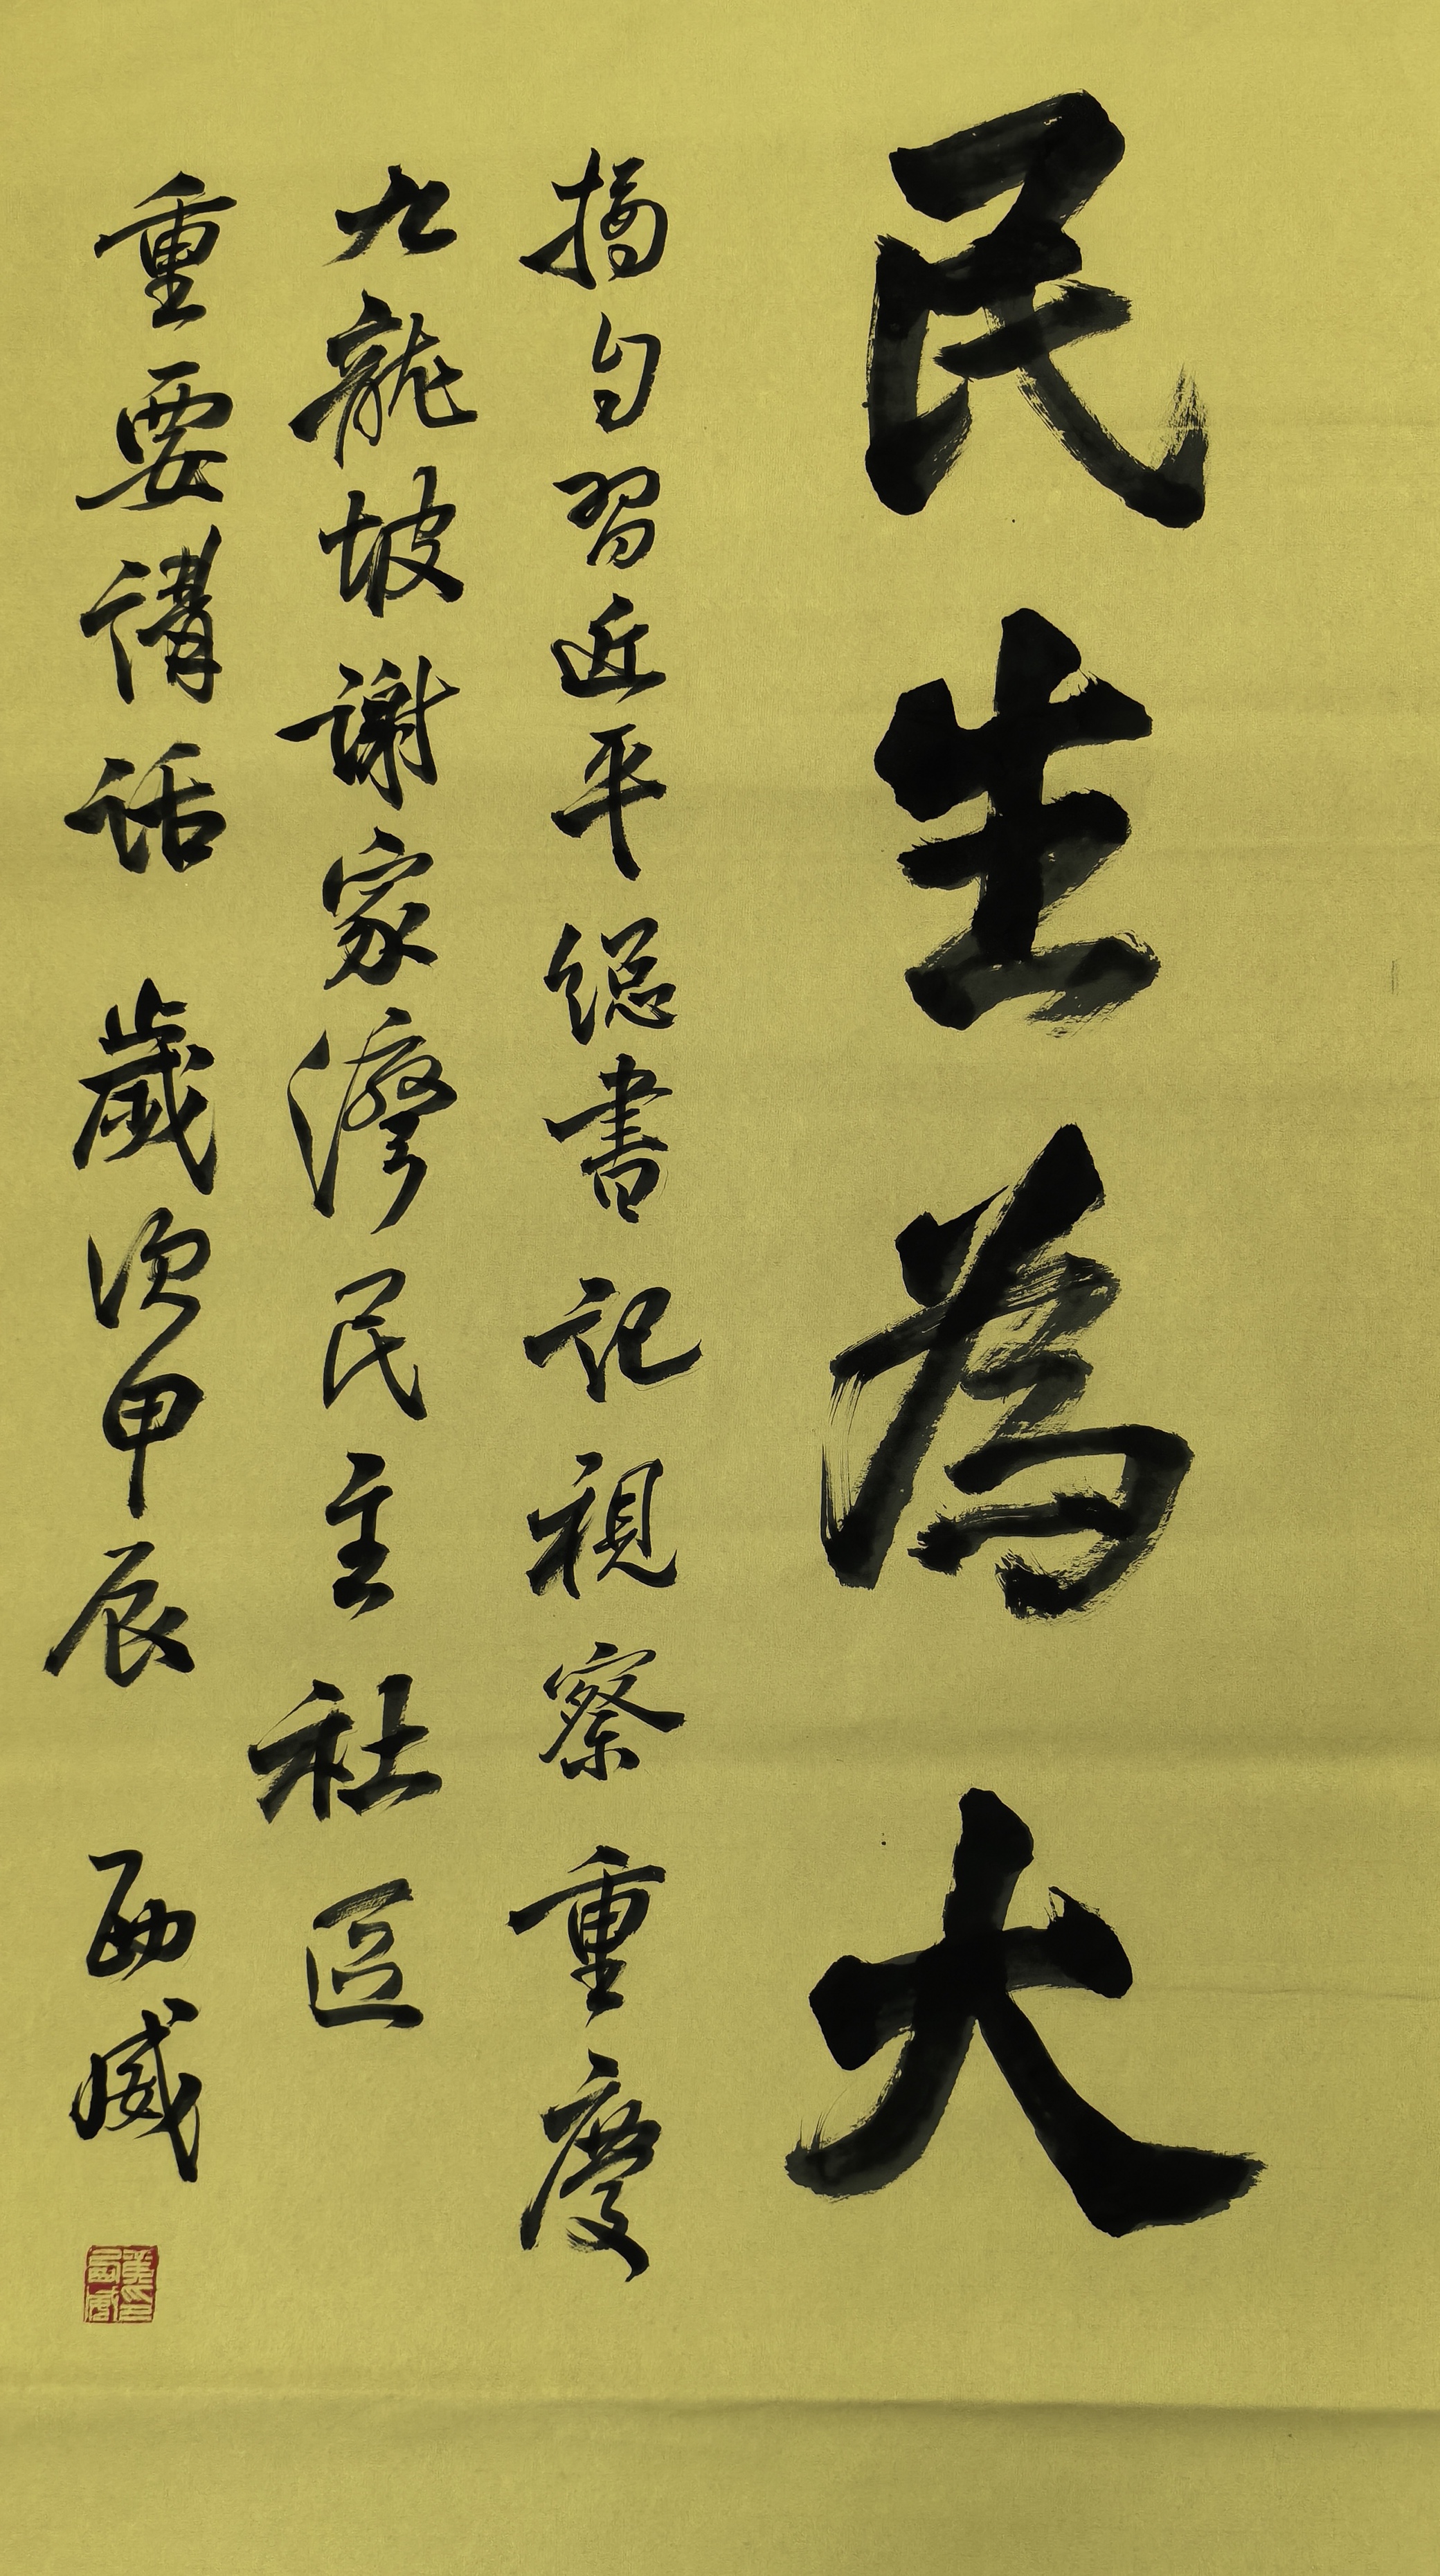 民生為大
摘句習近平總書記視察重慶
九龍坡謝家灣民主社區
重要講話 歲次甲辰 西威